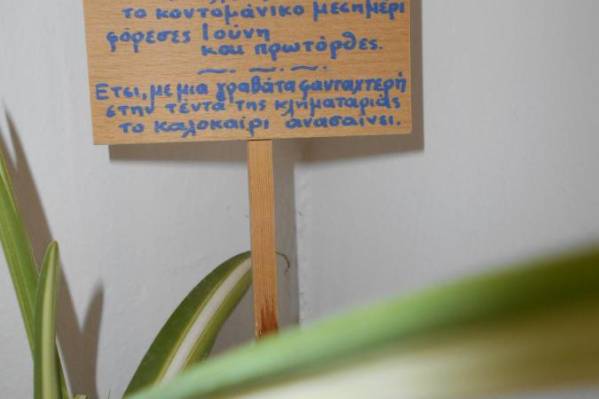 το κοντομάνικο μεσημέρι
φόρεσες Ιούνη
και πρωτόρθες.
Έτσι, με μια γραβάτα φανταχτερή
στην τέντα της κληματαριάς
το καλοκαίρι ανασαίνει.